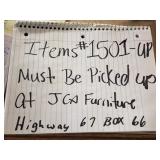 Items #1501-up
Must Be Picked up
at JGX Furniture
Highway 67 BOX 66